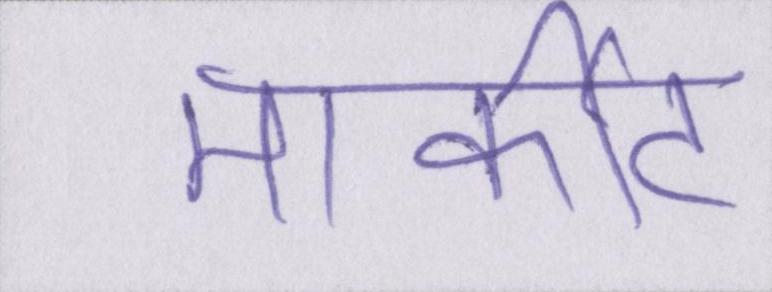 मार्कीट